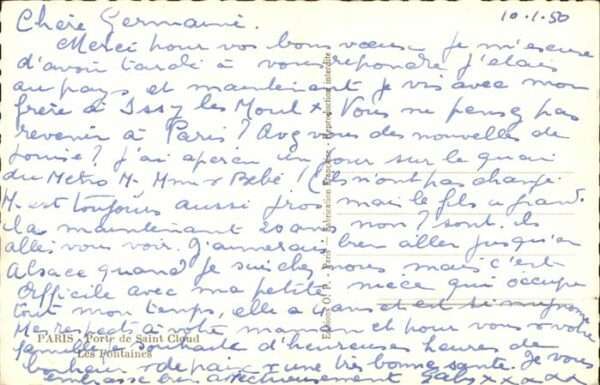 10-1-50
Chère Germaine.
Merci pour vos bons voeux. Je m'excuse
d'avoir tardé à vous répondre j'étais
au pays et maintenant je vis avec mon
frère à Issy les Moul x Vous ne pensez pas
revenir à Paris? Avez vous des nouvelles de
Louise? J'ai aperçu un jour sur le quai
du Métro M. Mme x Bébé! Ils n'ont pas changé
M. est toujours aussi gros mais le fils a grand.
il a maintenant 20 ans non? sont ils
allés vous voir. J'aimerais bien aller jusqu'en
Alsace quand je suis chez nous mais c'est
difficile avec ma petite nièce qui occupe
tout mon temps, elle a 4 ans et est si mignonne
Mes respects à votre maman et pour vous x votre
famille je souhaite d'heureuses heures de
bonheur x de paix x une très bonne santé. Je vous
embrasse très affectueusement
PARIS - Porte de Saint Cloud
Les Fontaines
Editions O. P. - Paris - Fabrication Française - Reproduction interdite